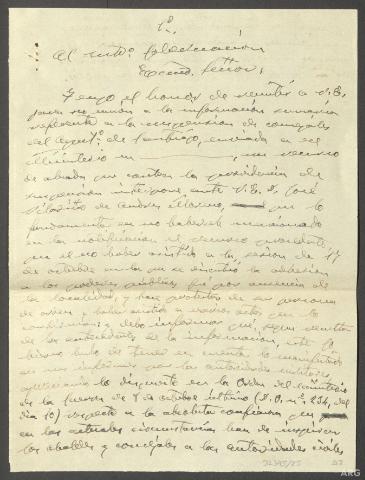 1º
Al mtrº. Gobernación
Excmo. Señor:
Tengo el honor de remitir a V.E.
para su unión a la información sumaria
referente a la suspensión de concejales
del Ayuntº. de Santiago, enviada a ese
Ministerio en , un recurso
de alzada que contra la providencia de
suspensión interpone ante V.E. D. José
de , que lo
fundamenta en no habérsele mencionado
en la notificación el recurso procedente,
que el no haber asistido a la sesión de 17
de octubre en la que se la adhesión
a los poderes públicos fué por ausencia de
la localidad, y hace protestas de ser persona
de orden y haber asistido a varios actos que lo
confirman; y debo informar que, según resulta
de los antecedentes de la información, este Gº
hubo de tener en cuenta lo manifestado
en un informe por las autoridades militares,
lo dispuesto en la Orden del Ministerio
de la Guerra de 8 de octubre último (D.O. nº 234, del
día 10) respecto a la absoluta confianza que
en las actuales circunstancias han de inspirar
los alcaldes y concejales a las autoridades civiles
ARG